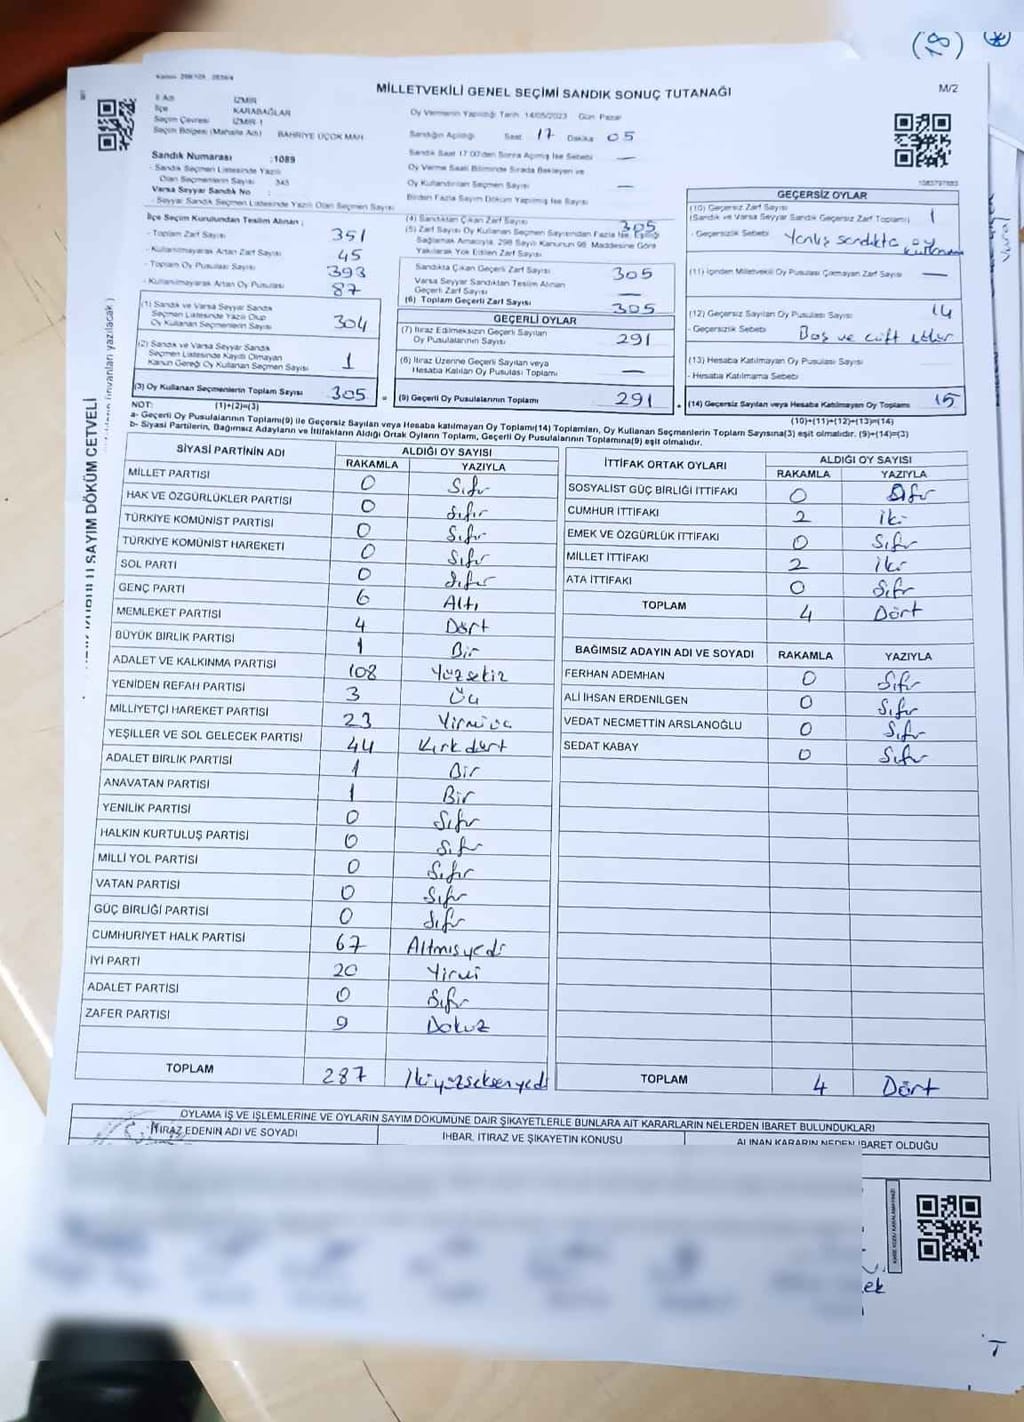 (18)
MİLLETVEKİLİ GENEL SEÇİMİ SANDIK SONUÇ TUTANAĞI
M/2
İl Adı İZMİR
İlçe KARABAĞLAR
Seçim Çevresi İZMİR 1
Seçim Bölgesi (Mahalle Adı) BAHRİYE ÜÇOK MAH
Oy Vermenin Yapıldığı Tarih 14/05/2023 Gün Pazar
Sandığın Açıldığı Saat 17 Dakika 05
Sandık Saat 17:00'den Sonra Açılmış İse Sebebi —
Oy Verme Saati Bitiminde Sırada Bekleyen ve
Oy Kullandırılan Seçmen Sayısı —
Birden Fazla Sayım Döküm Yapılmış İse Sayısı
Sandık Numarası : 1089
- Sandık Seçmen Listesinde Yazılı
Olan Seçmenlerin Sayısı 343
Varsa Seyyar Sandık No :
- Seyyar Sandık Seçmen Listesinde Yazılı Olan Seçmen Sayısı
İlçe Seçim Kurulundan Teslim Alınan ;
- Toplam Zarf Sayısı 351
- Kullanılmayarak Artan Zarf Sayısı 45
- Toplam Oy Pusulası Sayısı 393
- Kullanılmayarak Artan Oy Pusulası 87
(1) Sandık ve Varsa Seyyar Sandık
Seçmen Listesinde Yazılı Olup
Oy Kullanan Seçmenlerin Sayısı 304
(2) Sandık ve Varsa Seyyar Sandık
Seçmen Listesinde Kayıtlı Olmayan
Kanun Gereği Oy Kullanan Seçmen Sayısı 1
(3) Oy Kullanan Seçmenlerin Toplam Sayısı 305
(1)+(2)=(3)
(4) Sandıktan Çıkan Zarf Sayısı 305
(5) Zarf Sayısı Oy Kullanan Seçmen Sayısından Fazla İse, Eşitliği
Sağlamak Amacıyla, 298 Sayılı Kanunun 98. Maddesine Göre
Yakılarak Yok Edilen Zarf Sayısı
Sandıkta Çıkan Geçerli Zarf Sayısı 305
Varsa Seyyar Sandıktan Teslim Alınan
Geçerli Zarf Sayısı —
(6) Toplam Geçerli Zarf Sayısı 305
GEÇERLİ OYLAR
(7) İtiraz Edilmeksizin Geçerli Sayılan
Oy Pusulalarının Sayısı 291
(8) İtiraz Üzerine Geçerli Sayılan veya
Hesaba Katılan Oy Pusulası Toplamı —
(9) Geçerli Oy Pusulalarının Toplamı 291
GEÇERSİZ OYLAR
(10) Geçersiz Zarf Sayısı
(Sandık ve Varsa Seyyar Sandık Geçersiz Zarf Toplamı) 1
- Geçersizlik Sebebi Yanlış sandıkta oy kullanma
(11) İçinden Milletvekili Oy Pusulası Çıkmayan Zarf Sayısı —
(12) Geçersiz Sayılan Oy Pusulası Sayısı 14
- Geçersizlik Sebebi Boş ve çift
(13) Hesaba Katılmayan Oy Pusulası Sayısı
- Hesaba Katılmama Sebebi
(14) Geçersiz Sayılan veya Hesaba Katılmayan Oy Toplamı 15
(10)+(11)+(12)+(13)=(14)
NOT:
a- Geçerli Oy Pusulalarının Toplamı(9) ile Geçersiz Sayılan veya Hesaba katılmayan Oy Toplamı(14) Toplamları, Oy Kullanan Seçmenlerin Toplam Sayısına(3) eşit olmalıdır. (9)+(14)=(3)
b- Siyasi Partilerin, Bağımsız Adayların ve İttifakların Aldığı Ortak Oyların Toplamı, Geçerli Oy Pusulalarının Toplamına(9) eşit olmalıdır.
SAYIM DÖKÜM CETVELİ
ünvanları yazılacak.)
SİYASİ PARTİNİN ADI ALDIĞI OY SAYISI
RAKAMLA YAZIYLA
MİLLET PARTİSİ 0 Sıfır
HAK VE ÖZGÜRLÜKLER PARTİSİ 0 Sıfır
TÜRKİYE KOMÜNİST PARTİSİ 0 Sıfır
TÜRKİYE KOMÜNİST HAREKETİ 0 Sıfır
SOL PARTİ 0 Sıfır
GENÇ PARTİ 6 Altı
MEMLEKET PARTİSİ 4 Dört
BÜYÜK BİRLİK PARTİSİ 1 Bir
ADALET VE KALKINMA PARTİSİ 108 Yüzsekiz
YENİDEN REFAH PARTİSİ 3 Üç
MİLLİYETÇİ HAREKET PARTİSİ 23 Yirmiüç
YEŞİLLER VE SOL GELECEK PARTİSİ 44 Kırkdört
ADALET BİRLİK PARTİSİ 1 Bir
ANAVATAN PARTİSİ 1 Bir
YENİLİK PARTİSİ 0 Sıfır
HALKIN KURTULUŞ PARTİSİ 0 Sıfır
MİLLİ YOL PARTİSİ 0 Sıfır
VATAN PARTİSİ 0 Sıfır
GÜÇ BİRLİĞİ PARTİSİ 0 Sıfır
CUMHURİYET HALK PARTİSİ 67 Altmışyedi
İYİ PARTİ 20 Yirmi
ADALET PARTİSİ 0 Sıfır
ZAFER PARTİSİ 9 Dokuz
TOPLAM 287 İkiyüzseksenyedi
İTTİFAK ORTAK OYLARI ALDIĞI OY SAYISI
RAKAMLA YAZIYLA
SOSYALİST GÜÇ BİRLİĞİ İTTİFAKI 0 Sıfır
CUMHUR İTTİFAKI 2 İki
EMEK VE ÖZGÜRLÜK İTTİFAKI 0 Sıfır
MİLLET İTTİFAKI 2 İki
ATA İTTİFAKI 0 Sıfır
TOPLAM 4 Dört
BAĞIMSIZ ADAYIN ADI VE SOYADI RAKAMLA YAZIYLA
FERHAN ADEMHAN 0 Sıfır
ALİ İHSAN ERDENİLGEN 0 Sıfır
VEDAT NECMETTİN ARSLANOĞLU 0 Sıfır
SEDAT KABAY 0 Sıfır
TOPLAM 4 Dört
OYLAMA İŞ VE İŞLEMLERİNE VE OYLARIN SAYIM DÖKÜMÜNE DAİR ŞİKAYETLERLE BUNLARA AİT KARARLARIN NELERDEN İBARET BULUNDUKLARI
İTİRAZ EDENİN ADI VE SOYADI İHBAR, İTİRAZ VE ŞİKAYETİN KONUSU ALINAN KARARIN NEDEN İBARET OLDUĞU